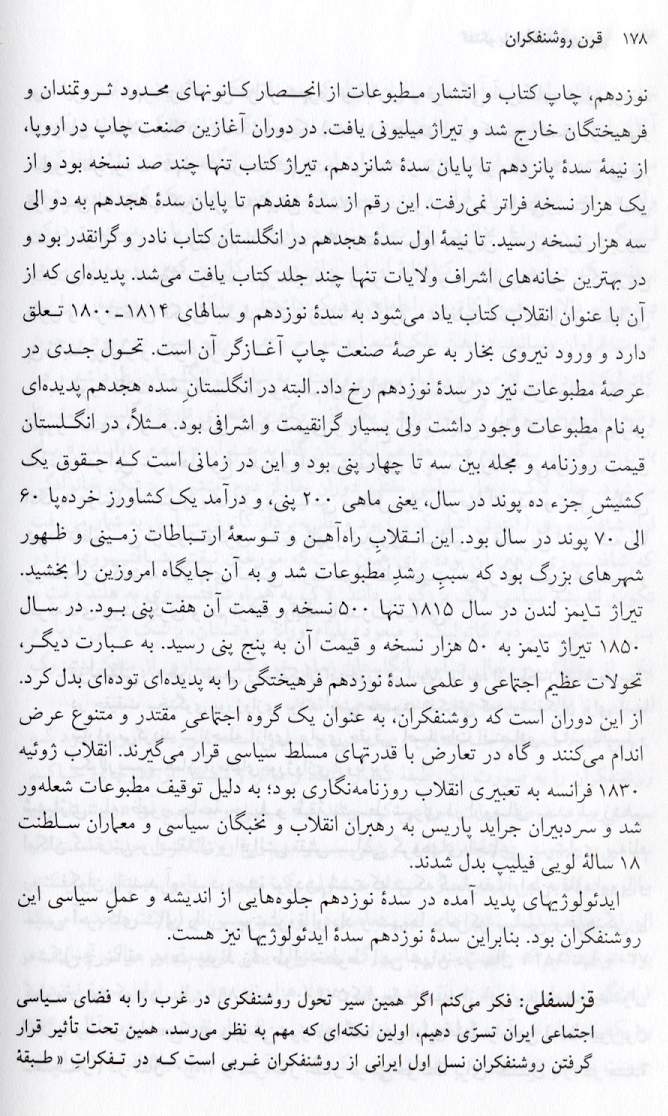 ۱۷۸ قرن روشنفکران
نوزدهم، چاپ کتاب و انتشار مطبوعات از انحصار کانونهای محدود ثروتمندان و
فرهیختگان خارج شد و تیراژ میلیونی یافت. در دوران آغازین صنعت چاپ در اروپا،
از نیمهٔ سدهٔ پانزدهم تا پایان سدهٔ شانزدهم، تیراژ کتاب تنها چند صد نسخه بود و از
یک هزار نسخه فراتر نمی‌رفت. این رقم از سدهٔ هفدهم تا پایان سدهٔ هجدهم به دو الی
سه هزار نسخه رسید. تا نیمهٔ اول سدهٔ هجدهم در انگلستان کتاب نادر و گرانقدر بود و
در بهترین خانه‌های اشراف ولایات تنها چند جلد کتاب یافت می‌شد. پدیده‌ای که از
آن با عنوان انقلاب کتاب یاد می‌شود به سدهٔ نوزدهم و سالهای ۱۸۱۴-۱۸۰۰ تعلق
دارد و ورود نیروی بخار به عرصهٔ صنعت چاپ آغازگر آن است. تحول جدی در
عرصهٔ مطبوعات نیز در سدهٔ نوزدهم رخ داد. البته در انگلستانِ سده هجدهم پدیده‌ای
به نام مطبوعات وجود داشت ولی بسیار گرانقیمت و اشرافی بود. مثلاً، در انگلستان
قیمت روزنامه و مجله بین سه تا چهار پنی بود و این در زمانی است که حقوق یک
کشیش جزء ده پوند در سال، یعنی ماهی ۲۰۰ پنی، و درآمد یک کشاورز خرده‌پا ۶۰
الی ۷۰ پوند در سال بود. این انقلاب راه‌آهن و توسعهٔ ارتباطات زمینی و ظهور
شهرهای بزرگ بود که سبب رشدِ مطبوعات شد و به آن جایگاه امروزین را بخشید.
تیراژ تایمز لندن در سال ۱۸۱۵ تنها ۵۰۰ نسخه و قیمت آن هفت پنی بود. در سال
۱۸۵۰ تیراژ تایمز به ۵۰ هزار نسخه و قیمت آن به پنج پنی رسید. به عبارت دیگر،
تحولات عظیم اجتماعی و علمی سدهٔ نوزدهم فرهیختگی را به پدیده‌ای توده‌ای بدل کرد.
از این دوران است که روشنفکران، به عنوان یک گروه اجتماعی مقتدر و متنوع عرض
اندام می‌کنند و گاه در تعارض با قدرتهای مسلط سیاسی قرار می‌گیرند. انقلاب ژوئیه
۱۸۳۰ فرانسه به تعبیری انقلاب روزنامه‌نگاری بود؛ به دلیل توقیف مطبوعات شعله‌ور
شد و سردبیران جراید پاریس به رهبران انقلاب و نخبگان سیاسی و معماران سلطنت
۱۸ سالهٔ لویی فیلیپ بدل شدند.
ایدئولوژیهای پدید آمده در سدهٔ نوزدهم جلوه‌هایی از اندیشه و عملِ سیاسی این
روشنفکران بود. بنابراین سدهٔ نوزدهم سدهٔ ایدئولوژیها نیز هست.
قزلسفلی: فکر می‌کنم اگر همین سیر تحول روشنفکری در غرب را به فضای سیاسی
اجتماعی ایران تسرّی دهیم، اولین نکته‌ای که مهم به نظر می‌رسد. همین تحت تأثیر قرار
گرفتن روشنفکران نسل اول ایرانی از روشنفکران غربی است که در تفکراتِ «طبقهٔ